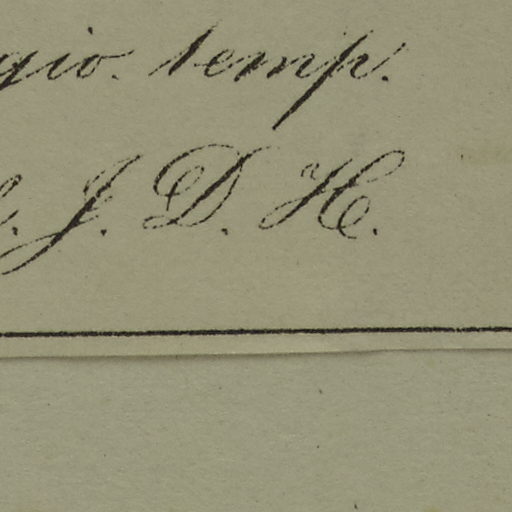 gio. temp.
l. J. D. H.